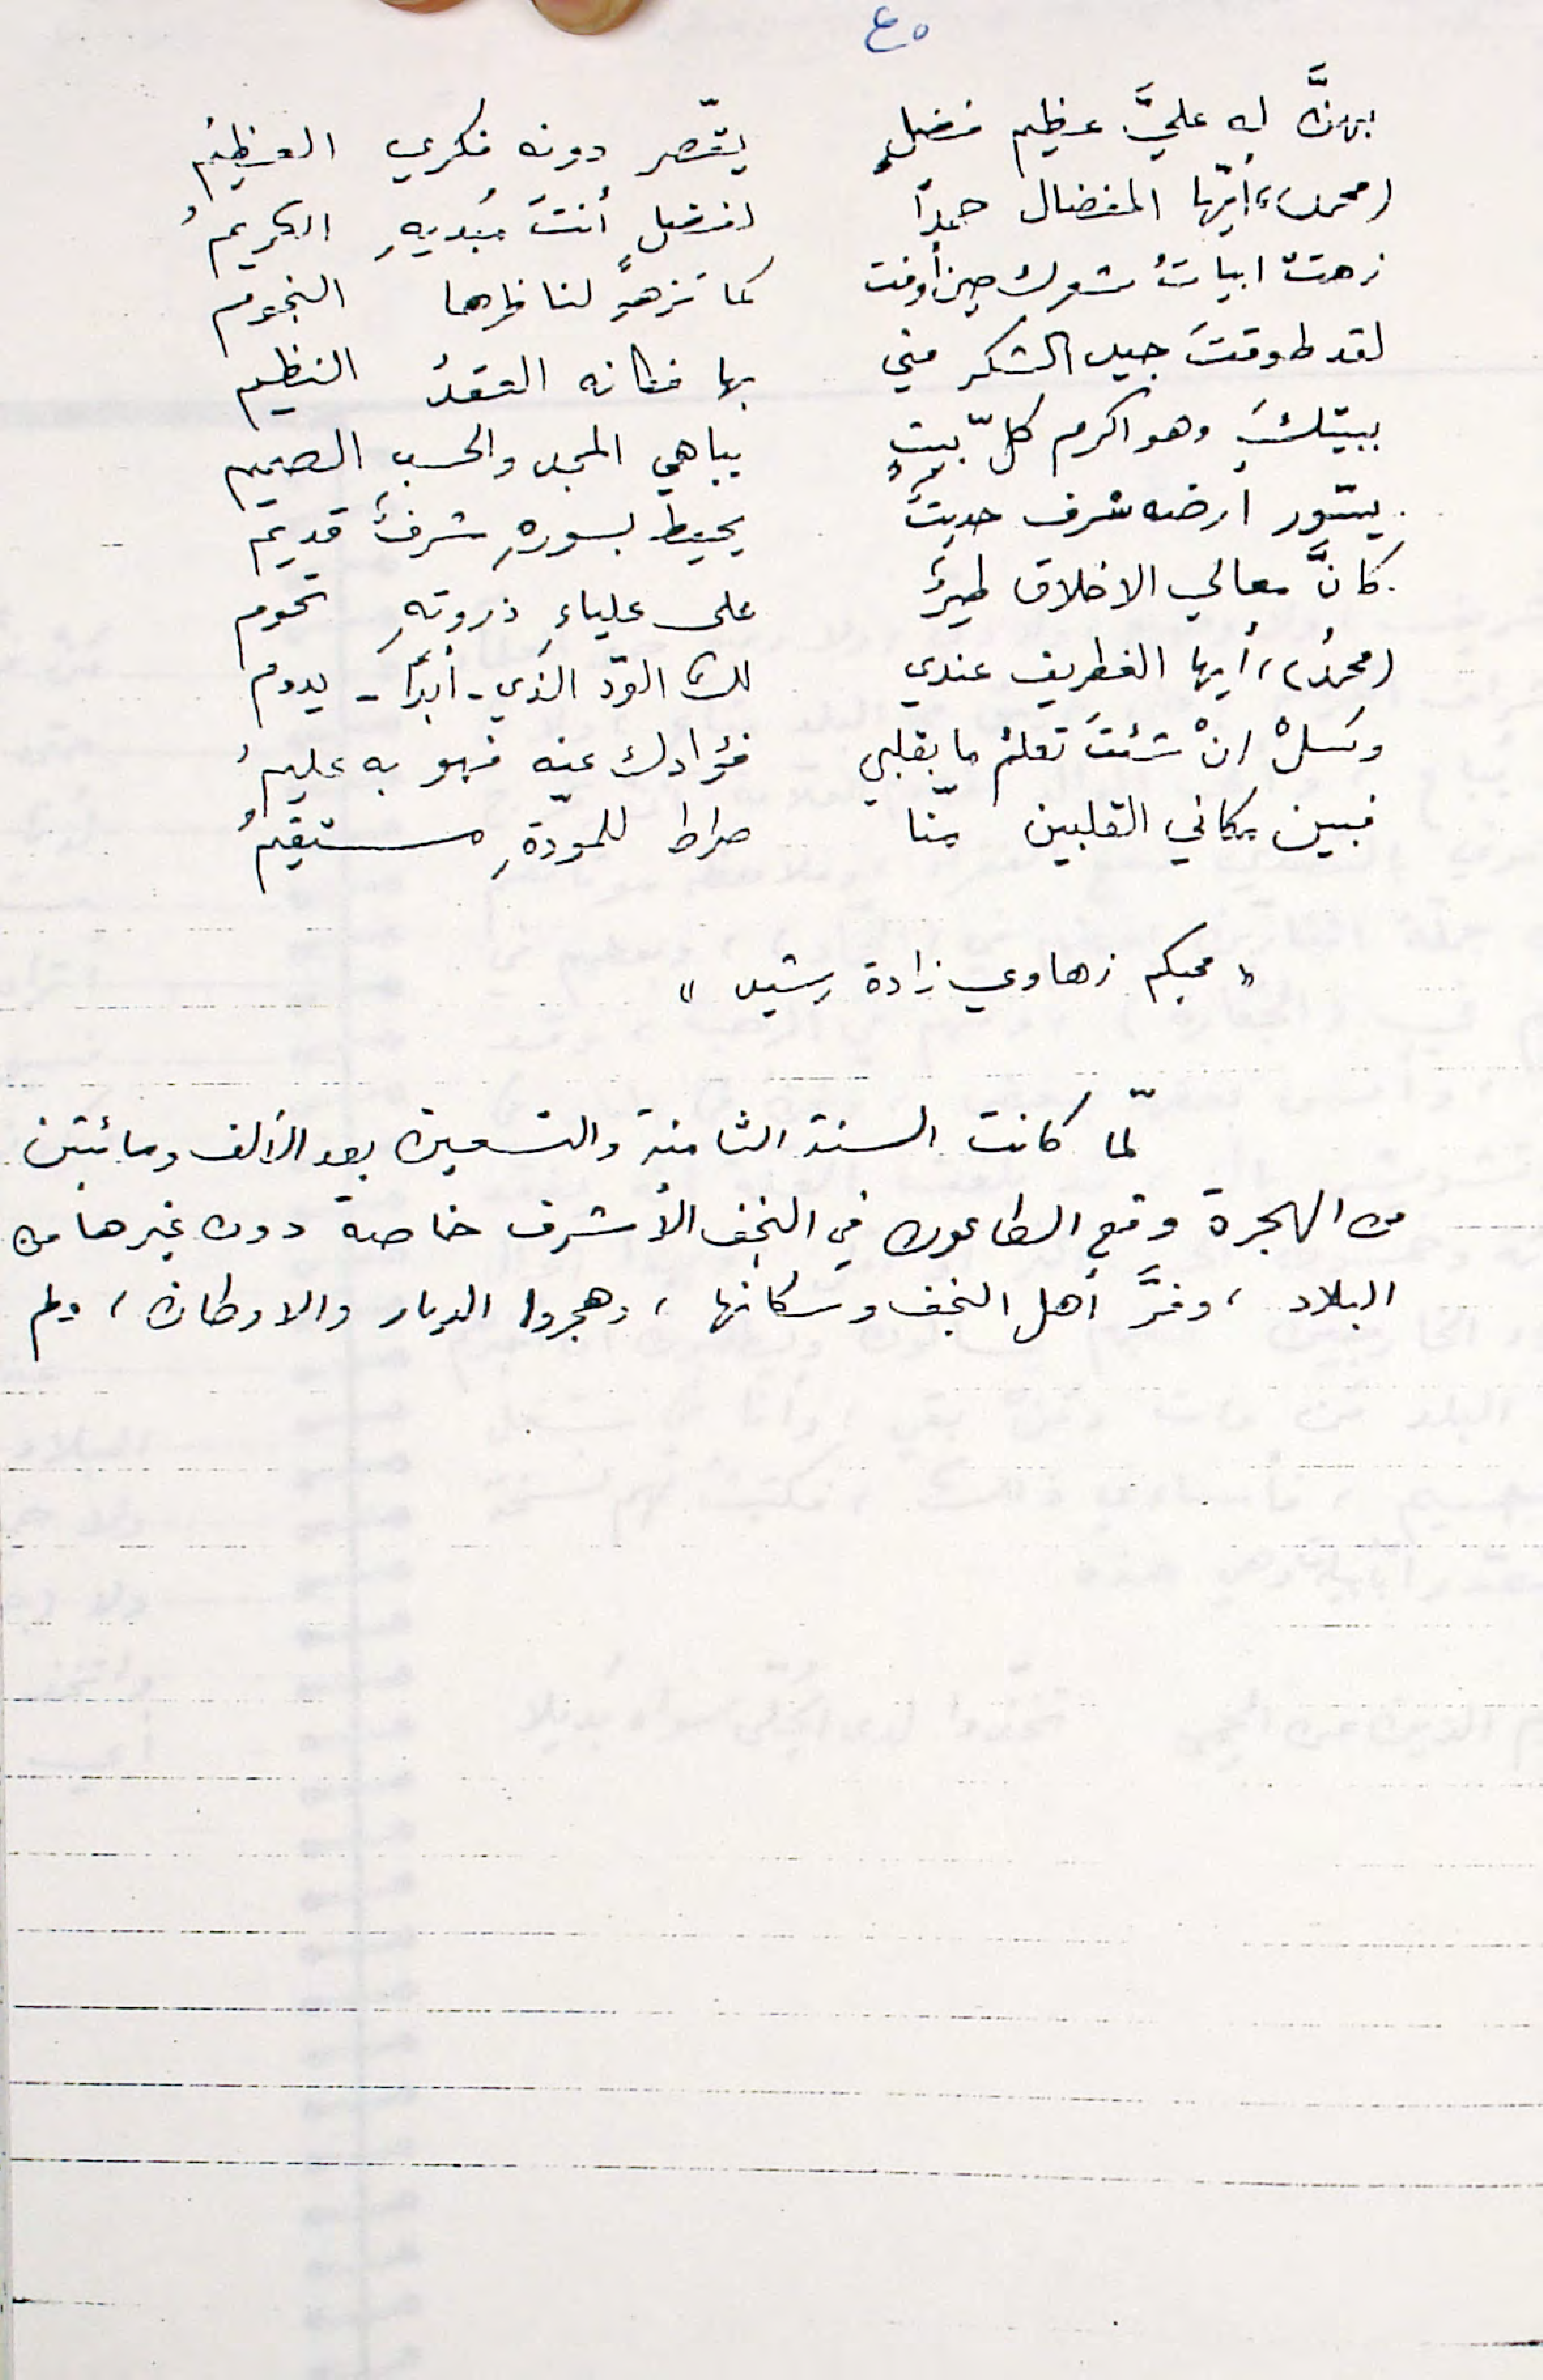 ٤٥
بهنَّ له عليَّ عظيم فضلٍ يقصّر دونه فكري العظيمُ
(محمد)، أيّها المفضال حمداً لفضلٍ أنتَ مُبديهِ الكريمُ
زهتْ ابياتُ شعرك حين أوفت كما تزهو لناظرها النجوم
لقد طوقتَ جيد الشكر مني بها فكانه العقدُ النظيم
ببيتكَ وهو اكرم كلّ بيتٍ يباهي المجد والحسب الصميم
يسّور ارضه شرف حديثٌ يحيط بسورهِ شرفٌ قديم
كانَّ معالي الاخلاق طيرٌ على علياءِ ذروتهِ تحوم
(محمدُ)، أيها الغطريف عندي لك الودّ الذي - أبداً - يدوم
وسَلْ انْ شئتَ تعلمْ ما بقلبي فؤادك عنه فهو به عليمُ
فبين مكاني القلبين منّا صراط للمودّةِ مستقيمُ
« محبكم زهاوي زادة رشيد »
لمّا كانت السنة الثامنة والتسعين بعد الألف ومائتين
من الهجرة وقع الطاعون في النجف الأشرف خاصة دون غيرها من
البلاد، وفرَّ أهل النجف وسكانها، وهجروا الديار والاوطان، ولم